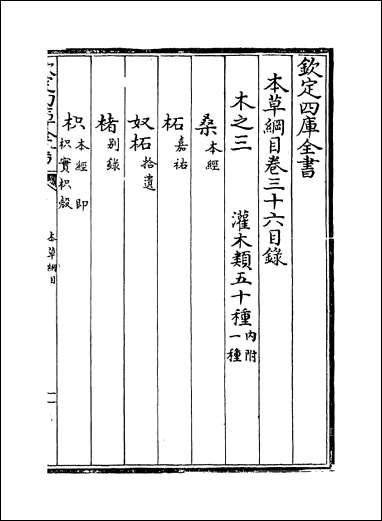 欽定四庫全書
本草綱目卷三十六目錄
木之三 灌木類五十種內附一種
桑本經
柘嘉祐
奴柘拾遺
楮別錄
枳本經即枳實枳殼
本草綱目